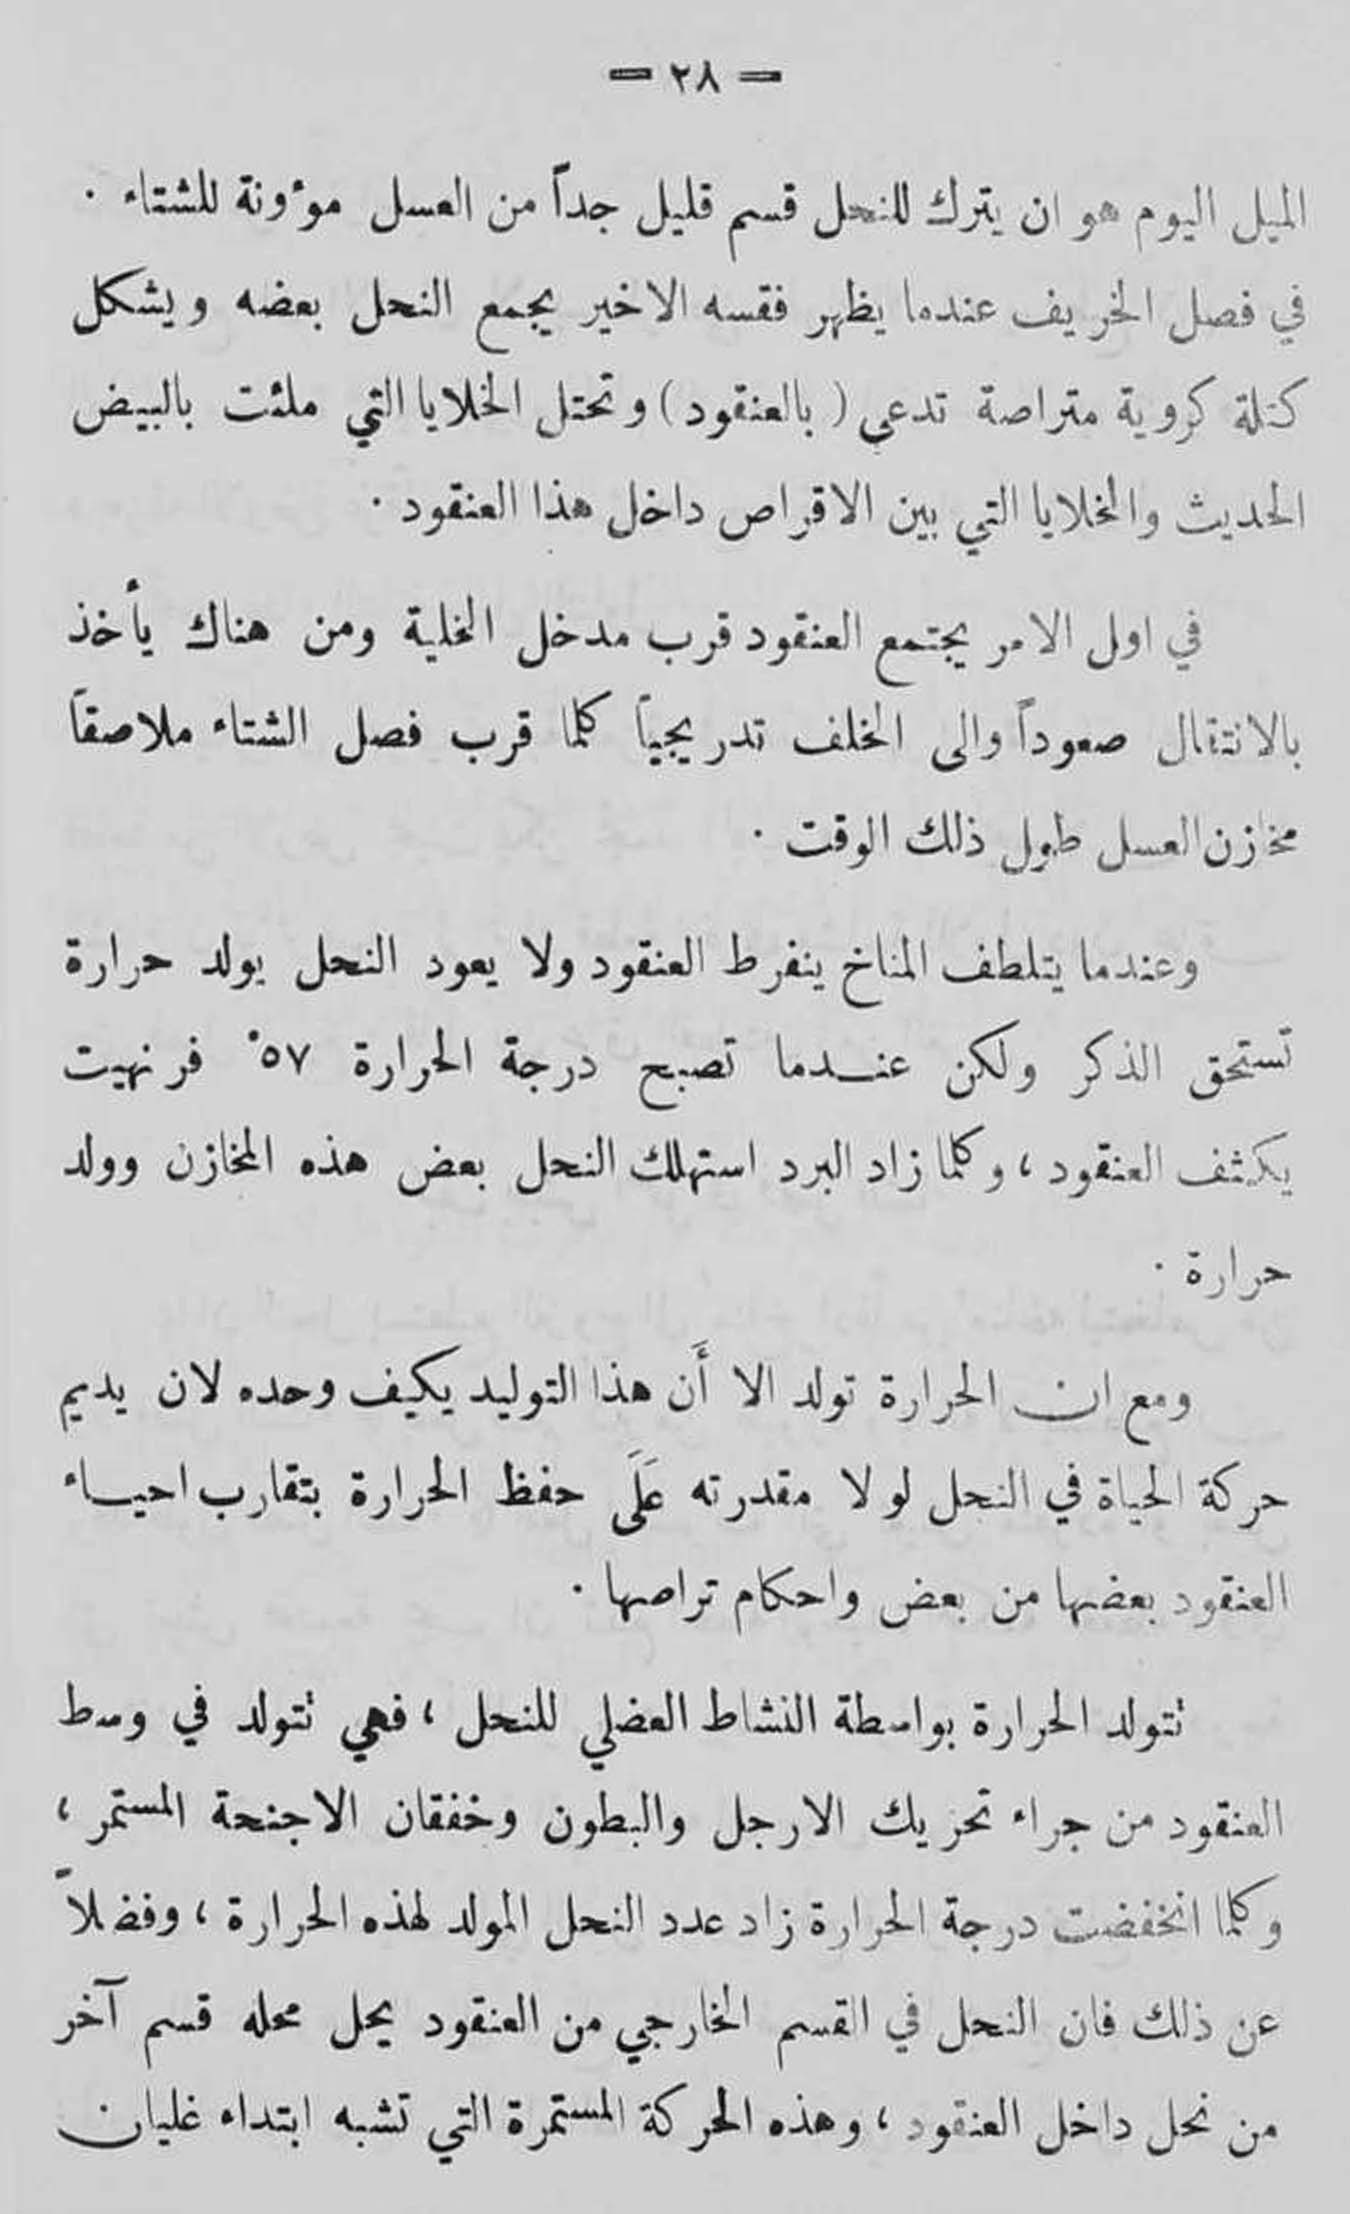 = ٢٨ =
الميل اليوم هو ان يترك للنحل قسم قليل جداً من العسل موءونة للشتاء .
في فصل الخريف عندما يظهر فقسه الاخير يجمع النحل بعضه ويشكل
كتلة كروية متراصة تدعى ( بالعنقود ) وتحتل الخلايا التي ملئت بالبيض
الحديث والخلايا التي بين الاقراص داخل هذا العنقود .
في اول الامر يجتمع العنقود قرب مدخل الخلية ومن هناك يأخذ
بالانتقال صعوداً والى الخلف تدريجياً كلما قرب فصل الشتاء ملاصقاً
مخازن العسل طول ذلك الوقت .
وعندما يتلطف المناخ ينفرط العنقود ولا يعود النحل يولد حرارة
تستحق الذكر ولكن عندما تصبح درجة الحرارة ٥٧° فرنهيت
يكثف العنقود ، وكلما زاد البرد استهلك النحل بعض هذه المخازن وولد
حرارة .
ومع ان الحرارة تولد الا أَن هذا التوليد يكيف وحده لان يديم
حركة الحياة في النحل لولا مقدرته عَلَى حفظ الحرارة بتقارب احياء
العنقود بعضها من بعض واحكام تراصها .
تتولد الحرارة بواسطة النشاط العضلي للنحل ، فهي تتولد في وسط
العنقود من جراء تحزيك الارجل والبطون وخفقان الاجنحة المستمر ،
وكلما انخفضت درجة الحرارة زاد عدد النحل المولد لهذه الحرارة ، وفضلاً
عن ذلك فان النحل في القسم الخارجي من العنقود يحل محله قسم آخر
من نحل داخل العنقود ، وهذه الحركة المستمرة التي تشبه ابتداء غليان